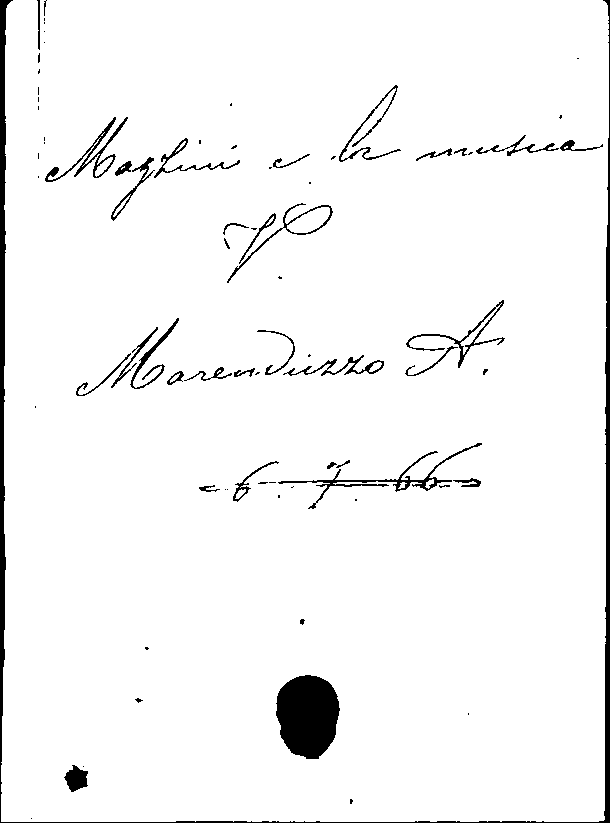 Mazzini e la musica
V.
Marenduzzo A.
6. 7. 66